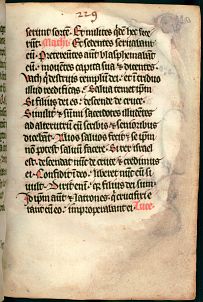 229
serunt sortē. Et milites qdē hec fece
rūt. Mathi. Et sedentes seruabant
eū. Pretereūtes aūt blasphemabāt
eū. mouētes capita sua & dicentes
Vach q destruis templū dei. et ī triduo
illud reedificas. Salua temet ipm̄
Si filius dei es. descende de cruce.
Similit & sūmi sacerdotes illudētes
ad alterutrū cū scribis & senioribus
dicebāt. Alios saluos fecit & se ipm̄
nō potest saluū facere. Si rex israel
est. descendat nūc de cruce & credimus
ei. Confidit ī deo. liberet nūc eū si
uult. Dixit enī. qr filius dei sum.
Id ipm̄ aūt & latrones. q crucifixi e
rant cū eo. improperabant ei. Luce